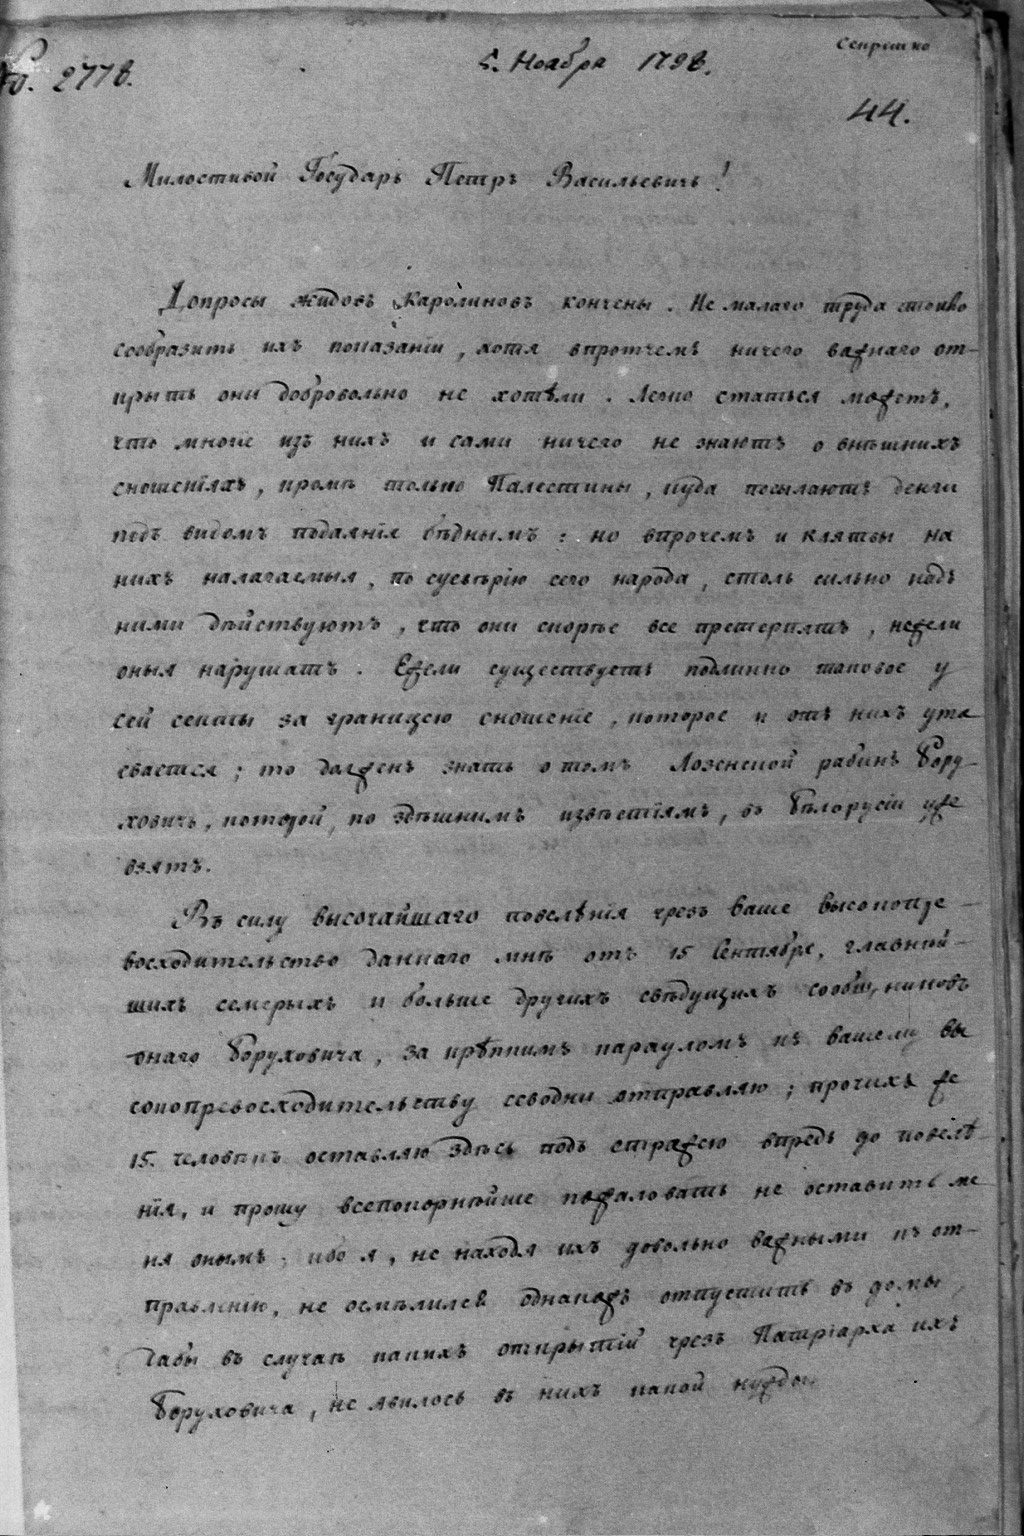 секретно
№. 2778.
5. Ноября 1798.
44.
Милостивой Государь Петръ Васильевичь!
Допросы жидовъ Каролиновъ кончены. Не малаго труда стоило
сообразить ихъ показаніи, хотя впротчемъ ничего важнаго от-
крыть они добровольно не хотѣли. Легко статься можетъ,
что многіе изъ нихъ и сами ничего не знаютъ о внѣшнихъ
сношеніяхъ, кромѣ только Палестины, куда посылаютъ денги
подъ видомъ подаянія бѣднымъ: но впрочемъ и клятвы на
нихъ налагаемыя, по суевѣрію сего народа, столь сильно надъ
ними дѣйствуютъ, что они скорѣе все претерпятъ, нежели
оныя нарушатъ. Ежели существуетъ подлинно таковое у
сей секты за границею сношеніе, которое и отъ нихъ ута
евается; то долженъ знать о томъ Лозенской рабинъ Бору-
ховичь, которой, по здѣшнимъ извѣстіямъ, въ Бѣлорусіи уже
взятъ.
Въ силу высочайшаго повелѣнія чрезъ ваше высокопре-
восходительство даннаго мнѣ отъ 15 Сентября, главнѣй-
шихъ семерыхъ и больше другихъ свѣдущихъ сообщниковъ
онаго Боруховича, за крѣпкимъ карауломъ къ вашему вы
сокопревосходительству севодни отправляю; прочихъ же
15. человѣкъ оставляю здѣсь подъ стражею впредь до повелѣ
нія, и прошу всепокорнѣйше пожаловать не оставить ме
ня онымъ; ибо я, не находя ихъ довольно важными къ от-
правленію, не осмѣлился однакожъ отпустить въ домы,
дабы въ случаѣ какихъ открытій чрезъ Патріарха ихъ
Боруховича, не явилось въ нихъ какой нужды